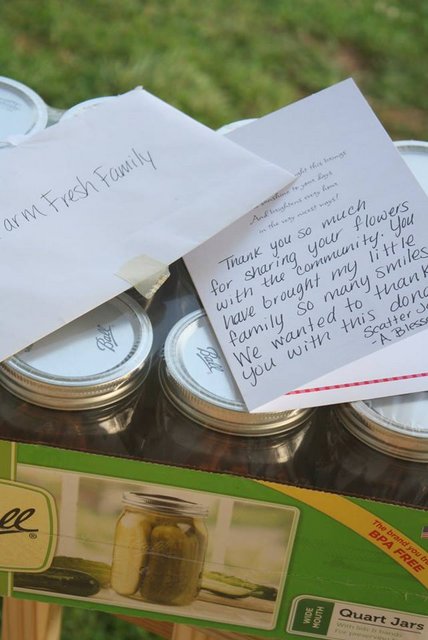 arm Fresh Family
ght this brings
sunshine to your days
And brightens every hour
in the very nicest ways!
Thank you so much
for sharing your flowers
with the community. You
have brought my little
family so many smiles
We wanted to thank
you with this dona
Scatter
-A Bless
Ball
Ball
Ball
®
The brand you tru
BPA FREE
WIDE
MOUTH
Quart Jars
With lids & bands